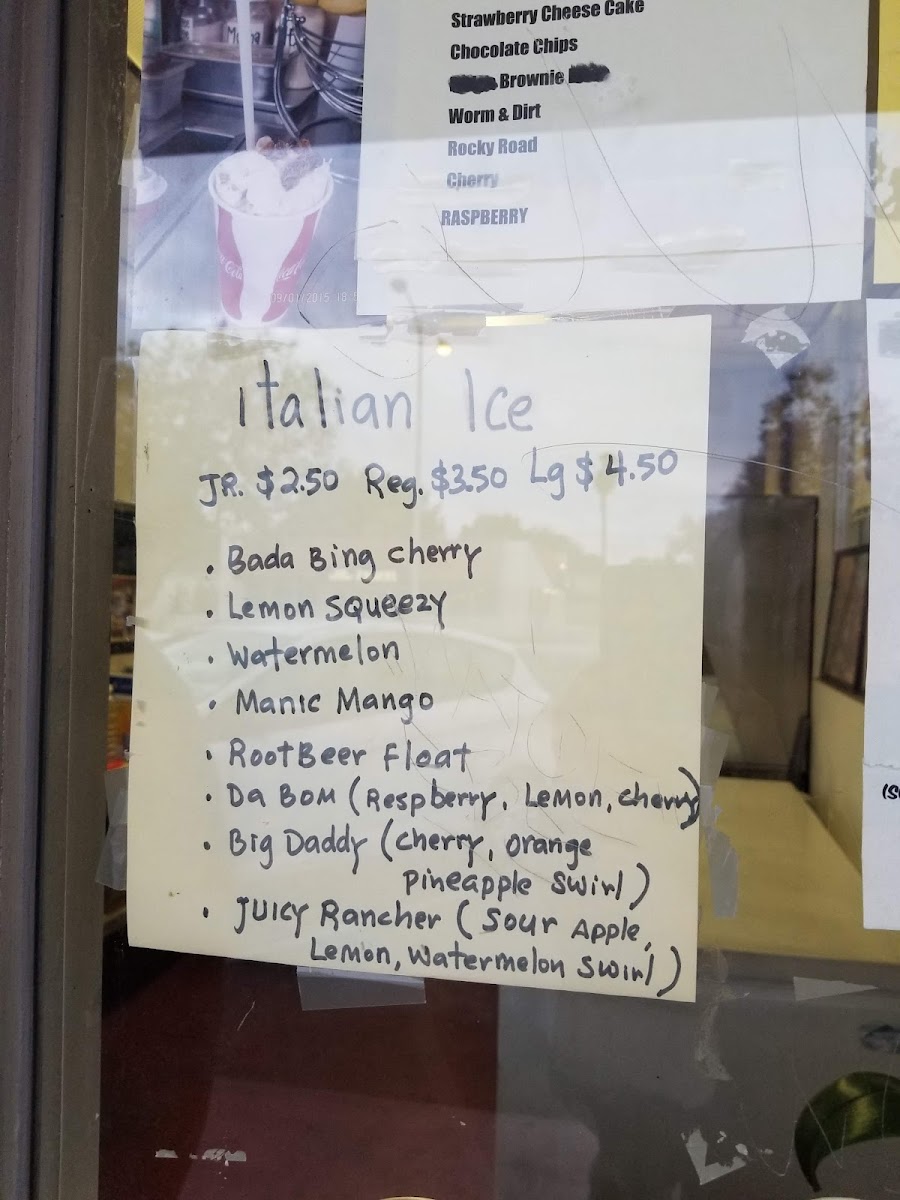 Strawberry Cheese Cake
Chocolate Chips
Brownie
Worm & Dirt
Rocky Road
Cherry
RASPBERRY
09/01/2015 18:5
Italian Ice
JR. $2.50 Reg. $3.50 Lg $4.50
• Bada Bing Cherry
• Lemon Squeezy
• Watermelon
• Manic Mango
• RootBeer Float
• Da Bom (Respberry, Lemon, cherry)
• Big Daddy (cherry, orange
pineapple swirl)
• Juicy Rancher (Sour Apple,
Lemon, Watermelon Swirl)